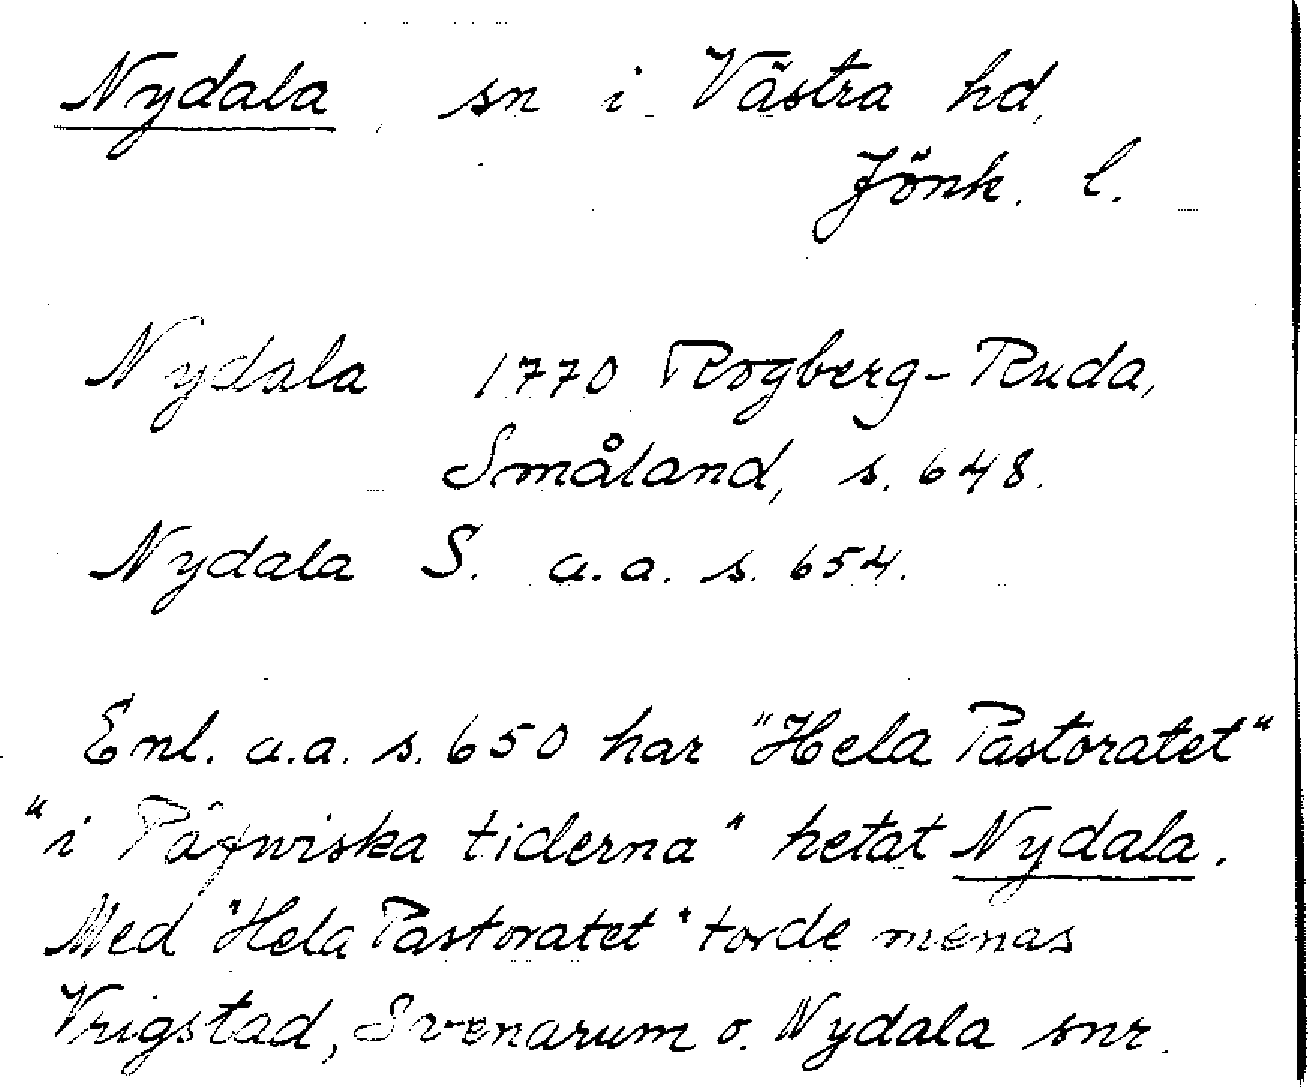 Nydala sn i Västra hd,
Jönk. l.
Nydala 1770 Rogberg-Ruda,
Småland, s. 648.
Nydala S. a.a. s. 654.
Enl. a.a. s. 650 har "Hela Pastoratet"
"i Påfwiska tiderna" hetat Nydala.
Med "Hela Pastoratet" torde menas
Vrigstad, Svenarum o. Nydala snr.